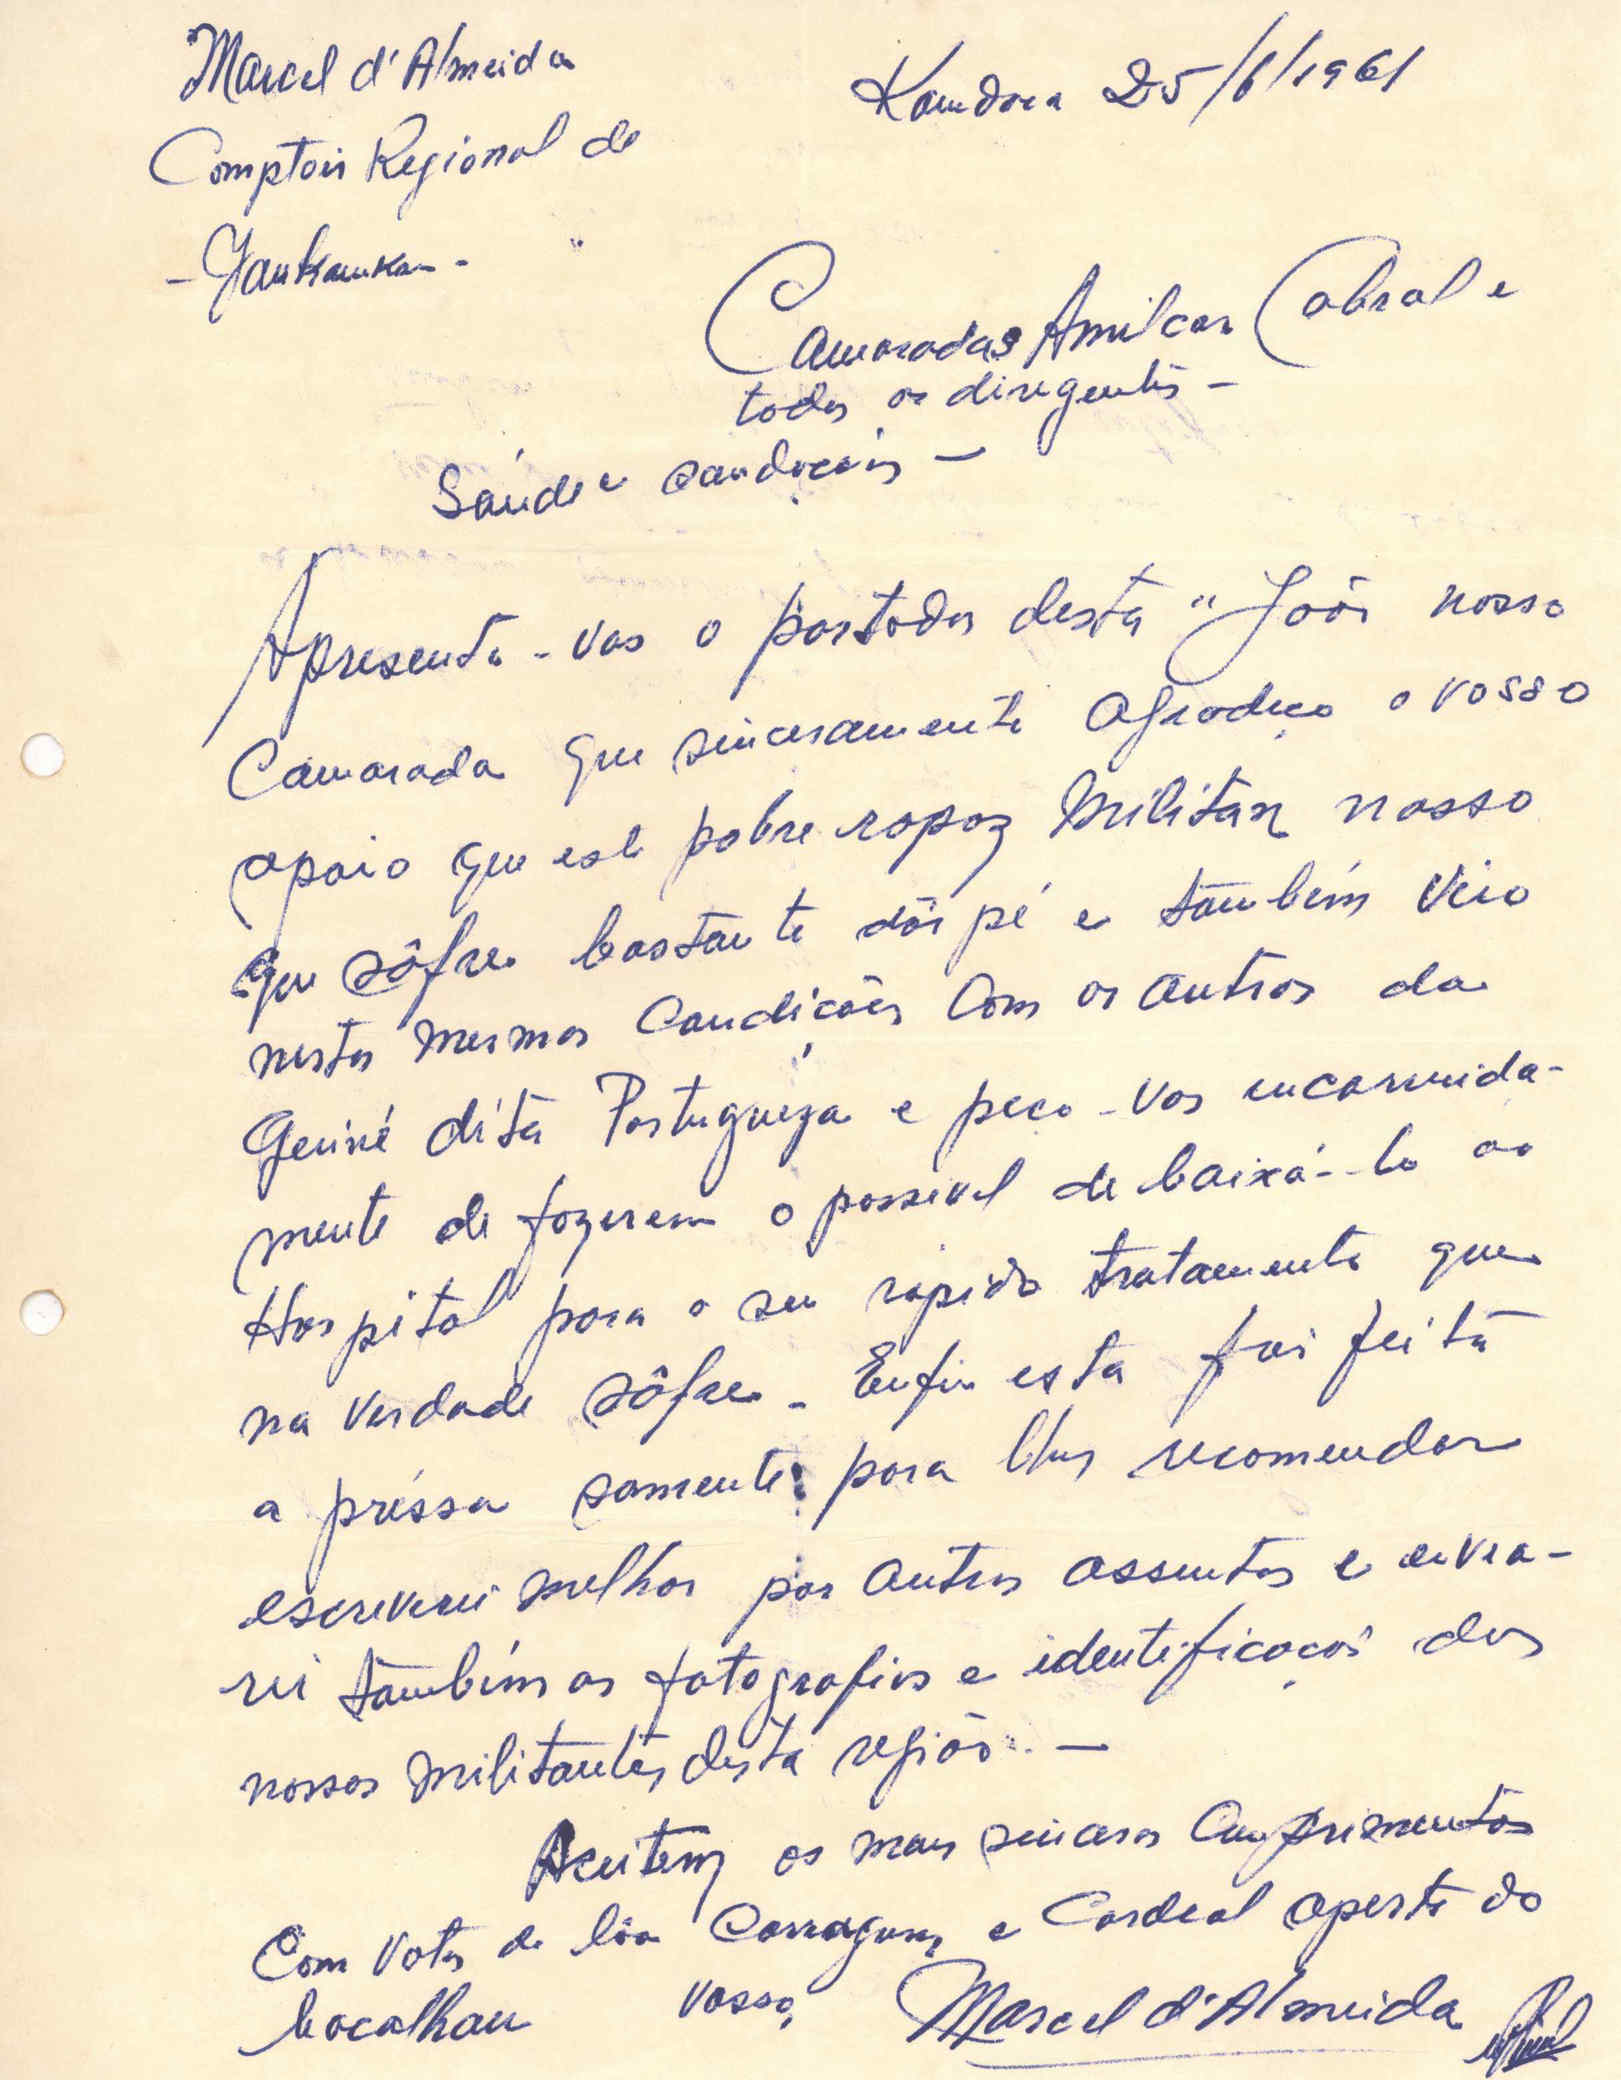 Marcel d'Almeida
Comptoir Regional de
- Yankamkam -
Kandoca 25/6/1961
Camaradas Amilcar Cabral e
todos os dirigentes -
Saúde e saudações -
Apresenta-vos o portador desta "João nosso
Camarada que sinceramente agradeço o vosso
apoio que este pobre rapaz Militar nosso
que sôfre bastante dôr pé e também veio
nestas mesmas Condições Com os outros da
Geiné dita Portugueza e peço-vos encarecida-
mente de fazerem o possivel de baixá-lo ao
Hospital para o seu rapido tratamento que
na verdade sôfre - Enfin esta foi feita
a préssa somente para lhes recomendar
escreverei melhor por outros assuntos e envea-
rei também as fotografias e identeficação dos
nossos militantes desta região. -
Aceitem os mais sinceros Cumprimentos
Com votos de bôa Corragem e Cordeal aperto do
bacalhau vosso,
Marcel d'Almeida